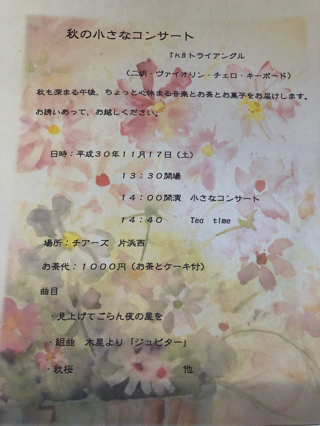 秋の小さなコンサート
TKBトライアングル
（二胡・ヴァイオリン・チェロ・キーボード）
秋も深まる午後、ちょっと心休まる音楽とお茶とお菓子をお届けします。
お誘いあって、お越しください。
日時：平成３０年１１月１７日（土）
１３：３０開場
１４：００開演　小さなコンサート
１４：４０　Tea time
場所：チアーズ　片浜西
お茶代：１０００円（お茶とケーキ付）
曲目
・見上げてごらん夜の星を
・組曲　木星より「ジュピター」
・秋桜　他